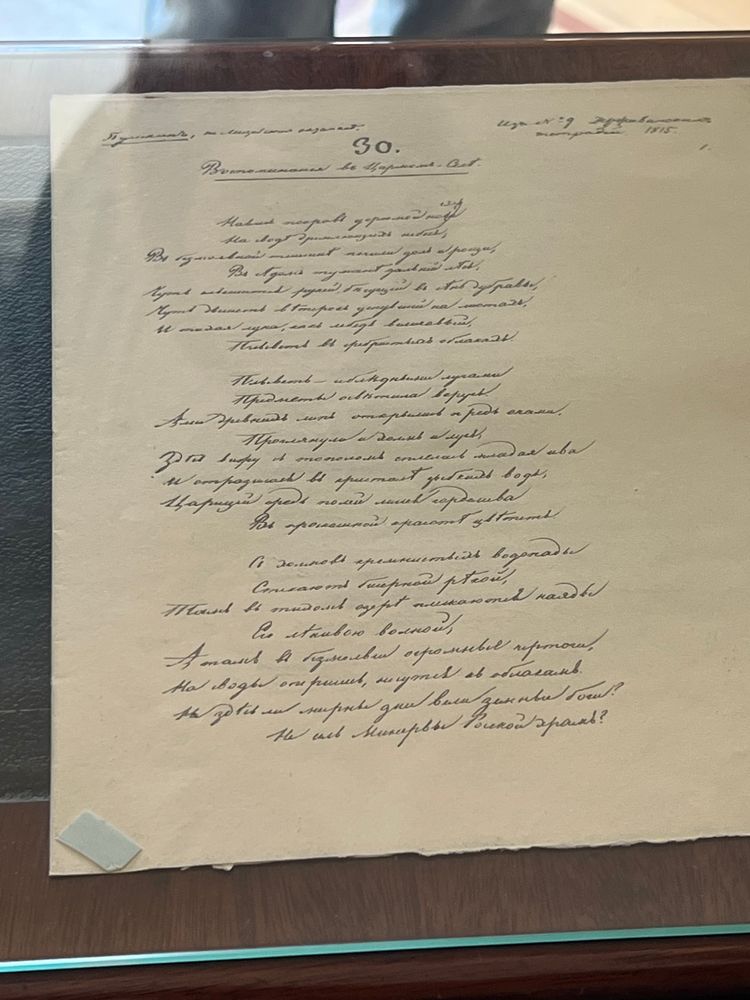 Пушкинъ,
Изъ № 9 Державинской
тетради. 1815.
1.
30.
Воспоминанія въ Царскомъ-Селѣ.
Нависъ покровъ угрюмой нощи
На сводѣ дремлющихъ небесъ,
Въ безмолвной тишинѣ почили долъ и рощи,
Въ сѣдомъ туманѣ дальній лѣсъ;
Чуть слышится ручей бѣгущій въ сѣнь дубравы,
Чуть дышетъ вѣтерокъ уснувшій на листахъ,
И тихая луна, какъ лебедь величавый,
Плыветъ въ сребристыхъ облакахъ.
Плыветъ — и блѣдными лучами
Предметы освѣтила вкругъ.
Аллеи древнихъ липъ открылись предъ очами,
Проглянули и холмъ и лугъ;
Здѣсь вижу съ тополомъ сплелась младая ива
И отразилася въ кристалѣ зыбкихъ водъ;
Царицей средь полей лилея горделива
Въ роскошной красотѣ цвѣтетъ.
Съ холмовъ кремнистыхъ водопады
Стекаютъ бисерной рѣкой,
Тамъ въ тихомъ озерѣ плескаются наяды
Его лѣнивою волной;
А тамъ въ безмолвіи огромные чертоги,
На своды опершись, несутся къ облакамъ.
Не здѣсь ли мирны дни вели земные боги?
Не се ль Минервы Росской храмъ?